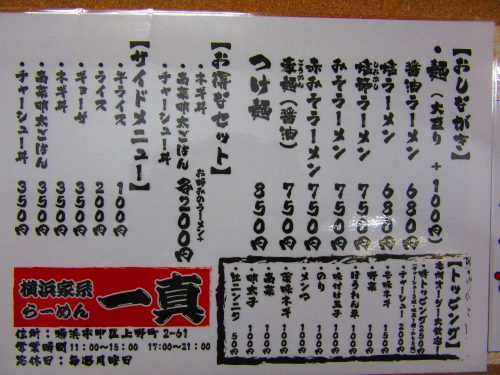 【おしながき】
・麺（大盛り + 100円）
醤油ラーメン 680円
塩ラーメン 680円
みそラーメン 750円
赤みそラーメン 750円
（醤油） 750円
つけ麺 850円
【お得なセット】
お好みのラーメン+
・ネギ丼
・高菜明太ごはん 各200円
・チャーシュー丼
【サイドメニュー】
・半ライス 100円
・ライス 200円
・ギョーザ 350円
・ネギ丼 350円
・高菜明太ごはん 350円
・チャーシュー丼 350円
【トッピング】
・特トッピング 250円
・チャーシュー 200円
・辛味ネギ
・野菜
・ほうれん草 100円
・味付け玉子 100円
・のり 100円
・メンマ 100円
・高菜 100円
・明太子 100円
・生ニンニク 50円
横浜家系
らーめん 一真
住所：横浜市中区上野町2-61
営業時間 11:00～15:00 17:00～21:00
定休日：毎週月曜日